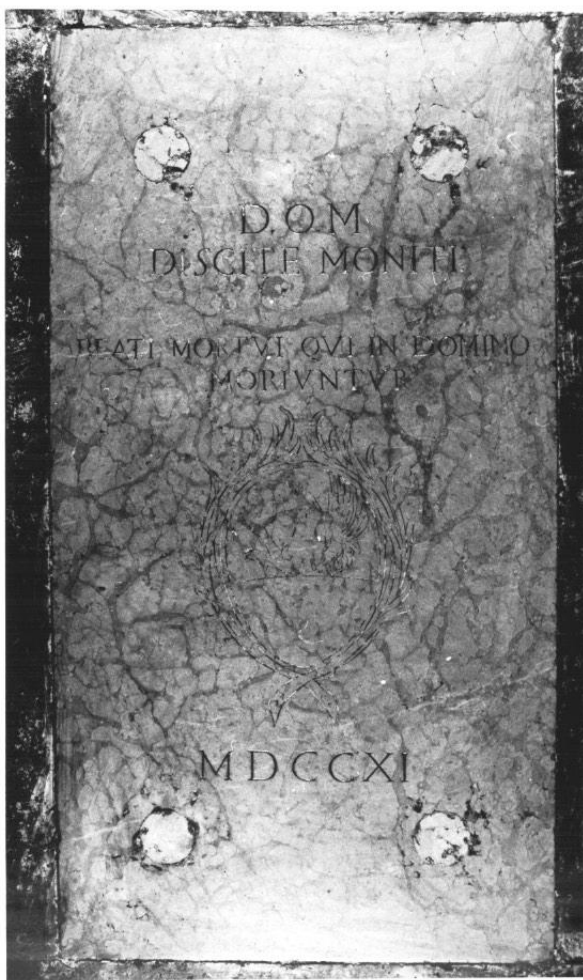 D.O.M
DISCITE MONITI
BEATI MORTVI QVI IN DOMINO
MORIVNTVR
MDCCXI